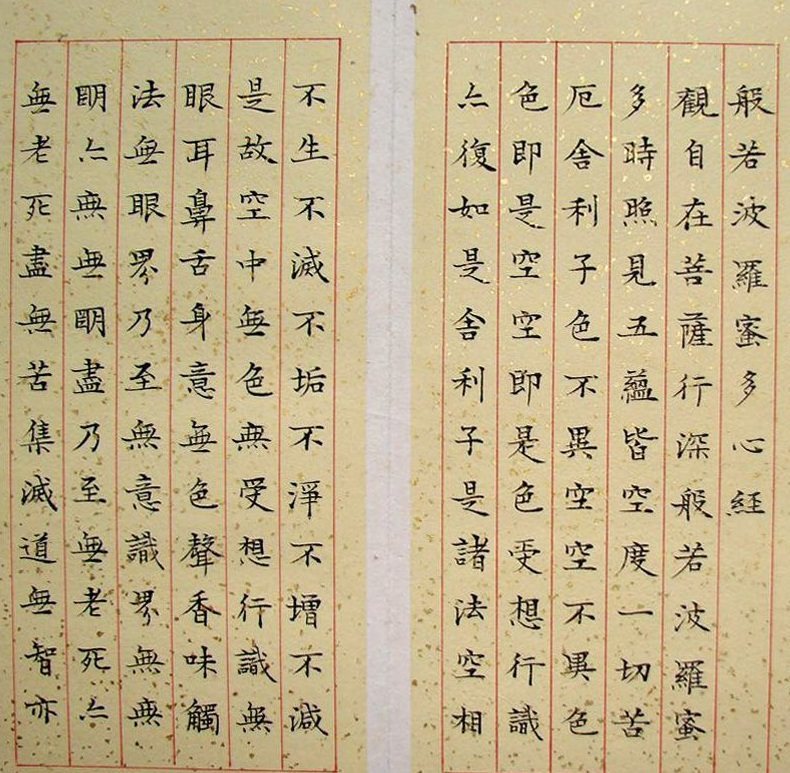 般若波羅蜜多心経
觀自在菩薩行深般若波羅蜜
多時照見五蘊皆空度一切苦
厄舍利子色不異空空不異色
色即是空空即是色受想行識
亦復如是舍利子是諸法空相
不生不滅不垢不淨不增不減
是故空中無色無受想行識無
眼耳鼻舌身意無色聲香味觸
法無眼界乃至無意識界無無
明亦無無明盡乃至無老死亦
無老死盡無苦集滅道無智亦